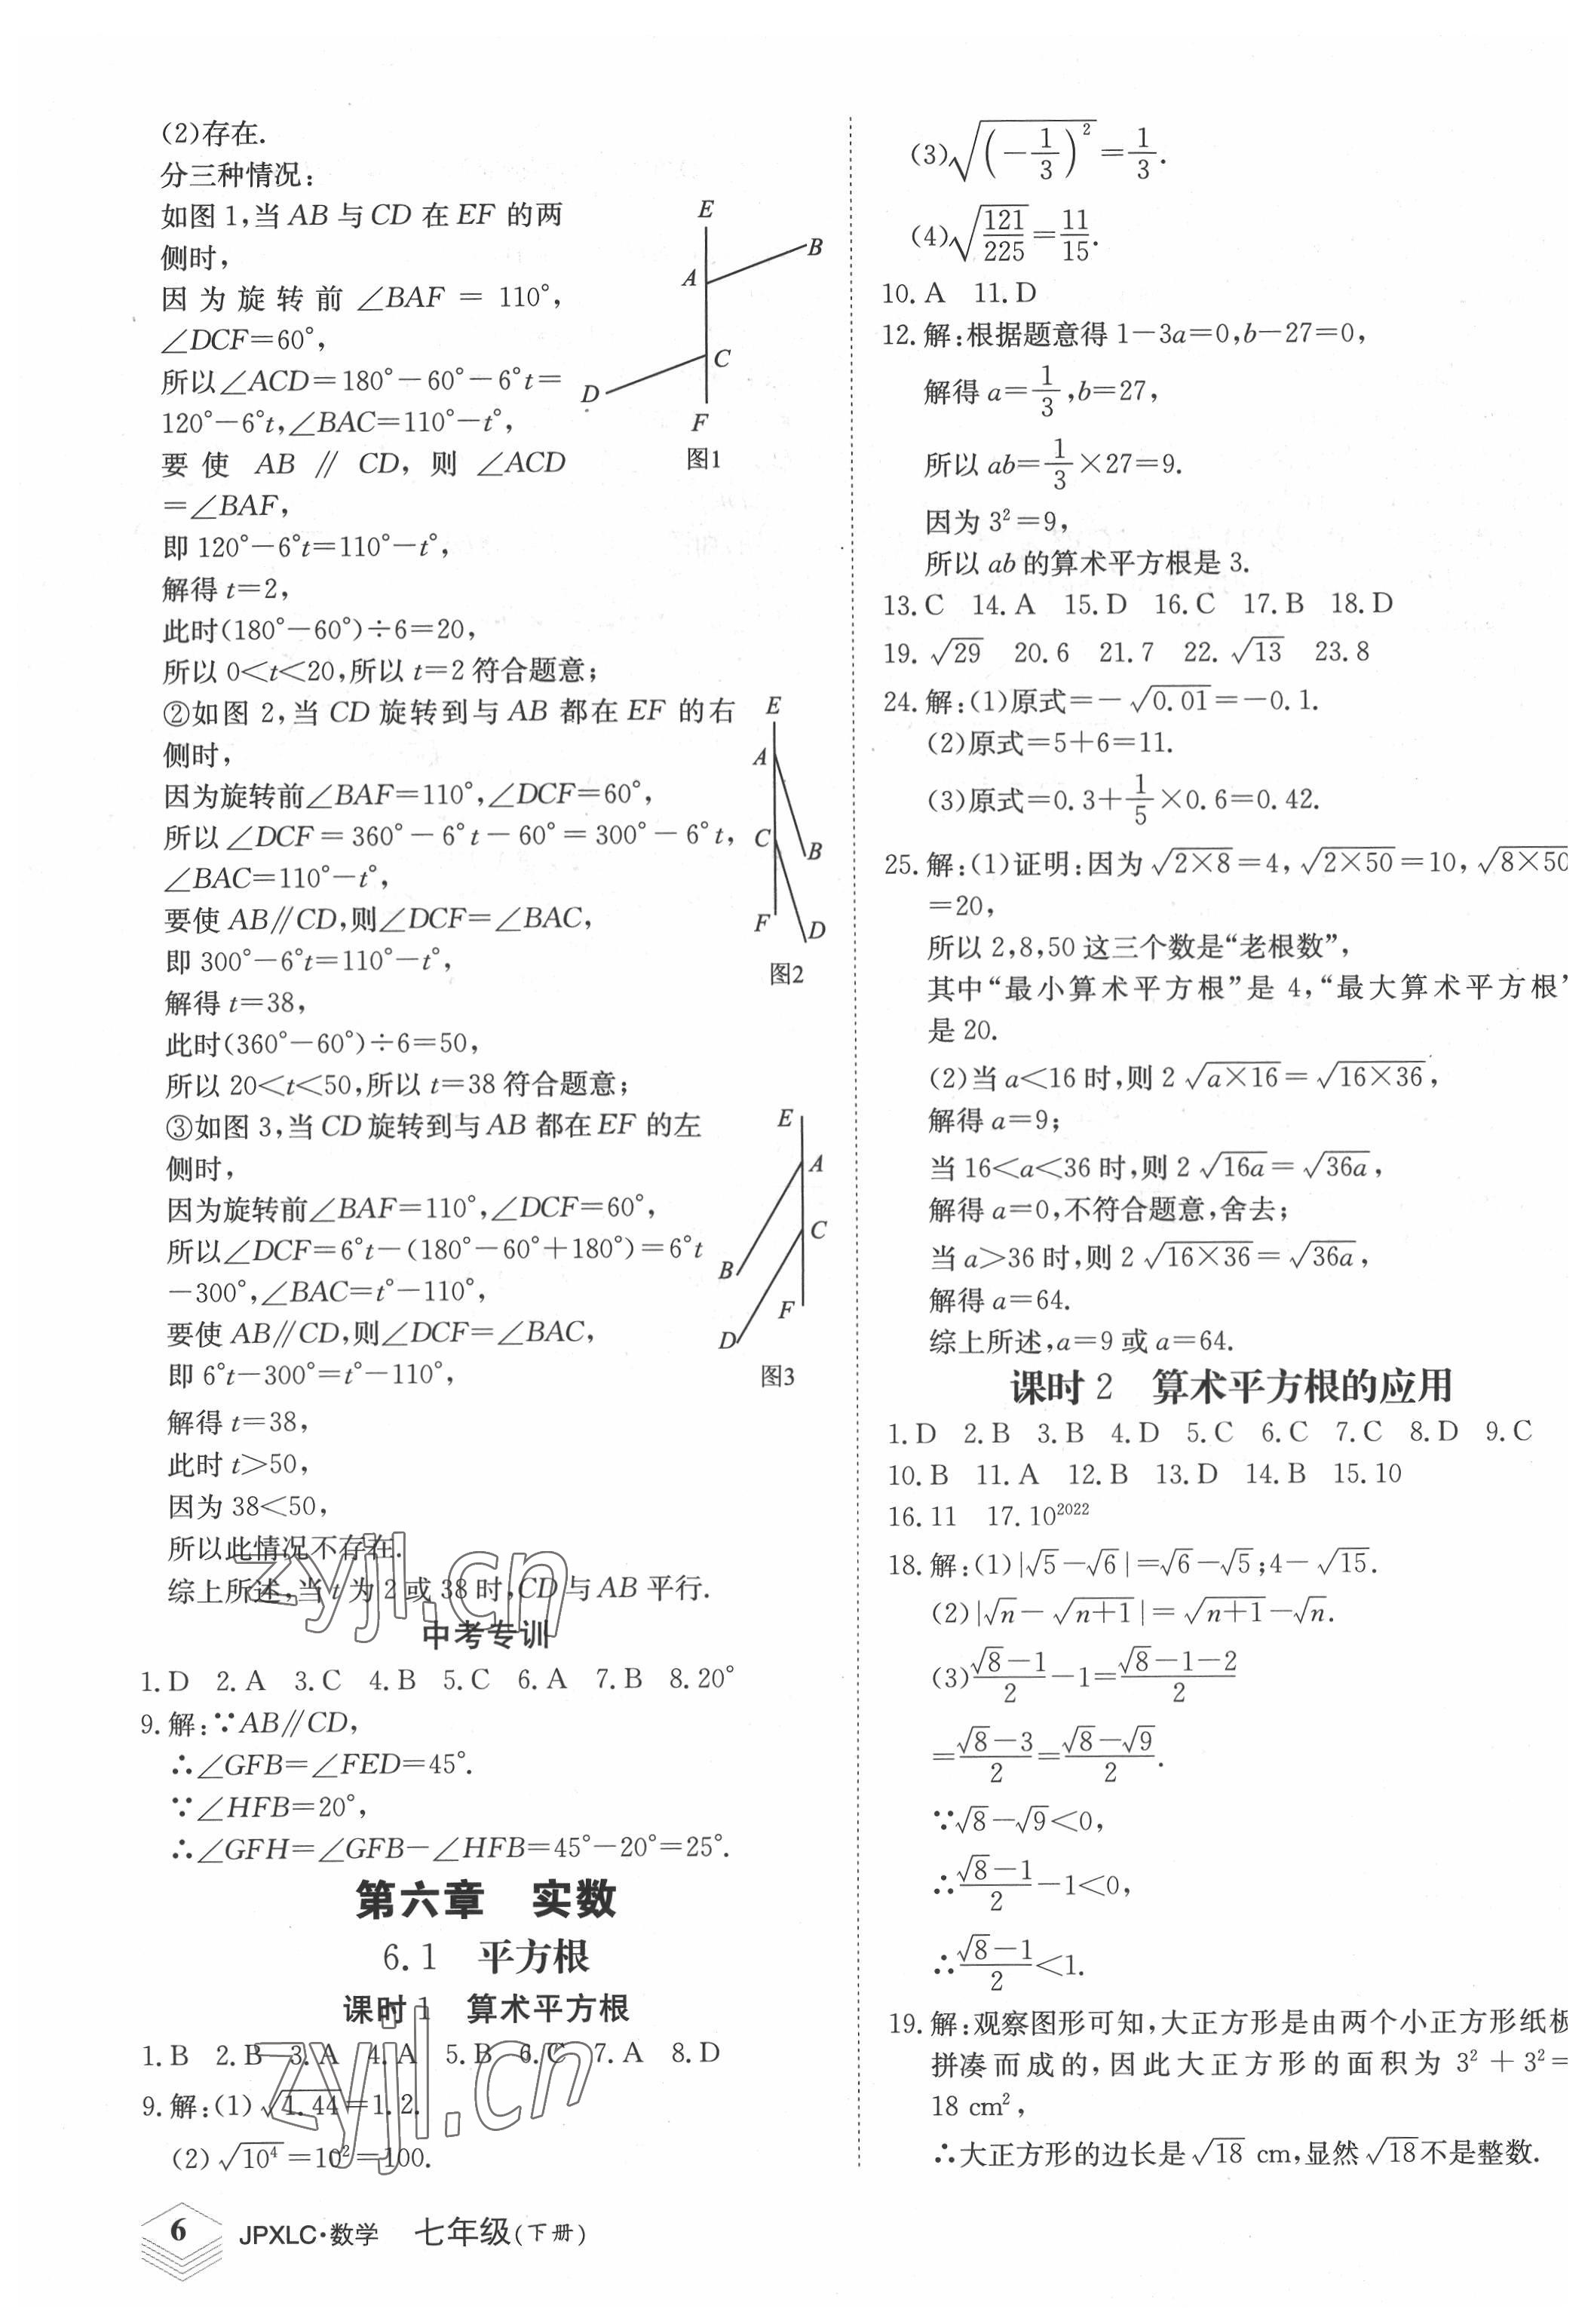 (2)存在.
分三种情况:
如图1,当AB与CD在EF的两
侧时,
因为旋转前∠BAF=110°,
∠DCF=60°,
所以∠ACD=180°-60°-6°t=
120°-6°t,∠BAC=110°-t°,
要使AB∥CD,则∠ACD
=∠BAF,
即120°-6°t=110°-t°,
解得t=2,
此时(180°-60°)÷6=20,
所以0<t<20,所以t=2符合题意;
E
B
A
C
D
F
图1
②如图2,当CD旋转到与AB都在EF的右
侧时,
因为旋转前∠BAF=110°,∠DCF=60°,
所以∠DCF=360°-6°t-60°=300°-6°t,
∠BAC=110°-t°,
要使AB∥CD,则∠DCF=∠BAC,
即300°-6°t=110°-t°,
解得t=38,
此时(360°-60°)÷6=50,
所以20<t<50,所以t=38符合题意;
E
A
C
B
F
D
图2
③如图3,当CD旋转到与AB都在EF的左
侧时,
因为旋转前∠BAF=110°,∠DCF=60°,
所以∠DCF=6°t-(180°-60°+180°)=6°t
-300°,∠BAC=t°-110°,
要使AB∥CD,则∠DCF=∠BAC,
即6°t-300°=t°-110°,
解得t=38,
此时t>50,
因为38<50,
所以此情况不存在.
综上所述,当t为2或38时,CD与AB平行.
E
A
C
B
F
D
图3
zyjl.cn
中考专训
1.D 2.A 3.C 4.B 5.C 6.A 7.B 8.20°
9.解:∵AB∥CD,
∴∠GFB=∠FED=45°.
∵∠HFB=20°,
∴∠GFH=∠GFB-∠HFB=45°-20°=25°.
第六章 实数
6.1 平方根
课时1 算术平方根
1.B 2.B 3.A 4.A 5.B 6.C 7.A 8.D
9.解:(1)√1.44=1.2.
(2)√10⁴=10²=100.
zyjl.cn
(3)√(-1/3)²=1/3.
(4)√121/225=11/15.
10.A 11.D
12.解:根据题意得1-3a=0,b-27=0,
解得a=1/3,b=27,
所以ab=1/3×27=9.
因为3²=9,
所以ab的算术平方根是3.
13.C 14.A 15.D 16.C 17.B 18.D
19.√29 20.6 21.7 22.√13 23.8
24.解:(1)原式=-√0.01=-0.1.
(2)原式=5+6=11.
(3)原式=0.3+1/5×0.6=0.42.
25.解:(1)证明:因为√2×8=4,√2×50=10,√8×50
=20,
所以2,8,50这三个数是“老根数”,
其中“最小算术平方根”是4,“最大算术平方根”
是20.
(2)当a<16时,则2√a×16=√16×36,
解得a=9;
当16<a<36时,则2√16a=√36a,
解得a=0,不符合题意,舍去;
当a>36时,则2√16×36=√36a,
解得a=64.
综上所述,a=9或a=64.
课时2 算术平方根的应用
1.D 2.B 3.B 4.D 5.C 6.C 7.C 8.D 9.C
10.B 11.A 12.B 13.D 14.B 15.10
16.11 17.10²⁰²²
18.解:(1)|√5-√6|=√6-√5;4-√15.
(2)|√n-√n+1|=√n+1-√n.
(3)(√8-1)/2-1=(√8-1-2)/2
=(√8-3)/2=(√8-√9)/2.
∵√8-√9<0,
∴(√8-1)/2-1<0,
∴(√8-1)/2<1.
19.解:观察图形可知,大正方形是由两个小正方形纸板
拼凑而成的,因此大正方形的面积为3²+3²=
18 cm²,
∴大正方形的边长是√18 cm,显然√18不是整数.
6 JPXLC·数学 七年级(下册)